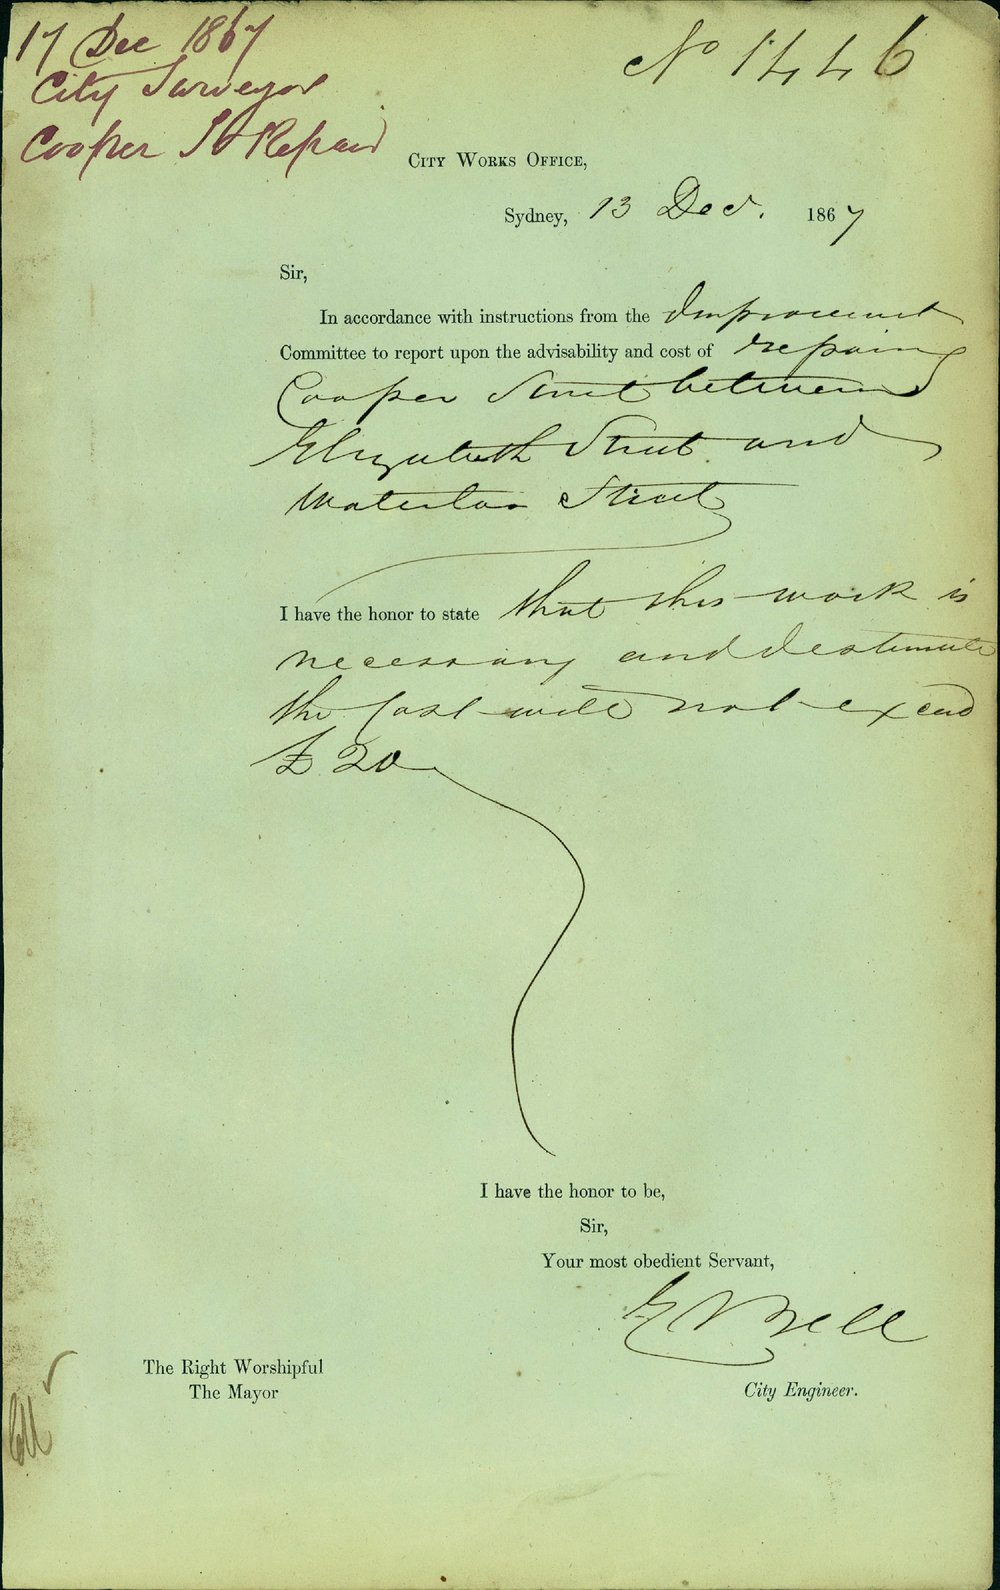 17 Dec 1867
City Surveyor
Cooper St Repair
No 1446
City Works Office,
Sydney, 13 Decr. 1867
Sir,
In accordance with instructions from the Improvement
Committee to report upon the advisability and cost of repairing
Cooper Street between
Elizabeth Street and
Waterloo Street
I have the honor to state that this work is
necessary and I estimate
the Cost will not exceed
£20
I have the honor to be,
Sir,
Your most obedient Servant,
E Bell
The Right Worshipful
The Mayor
City Engineer.